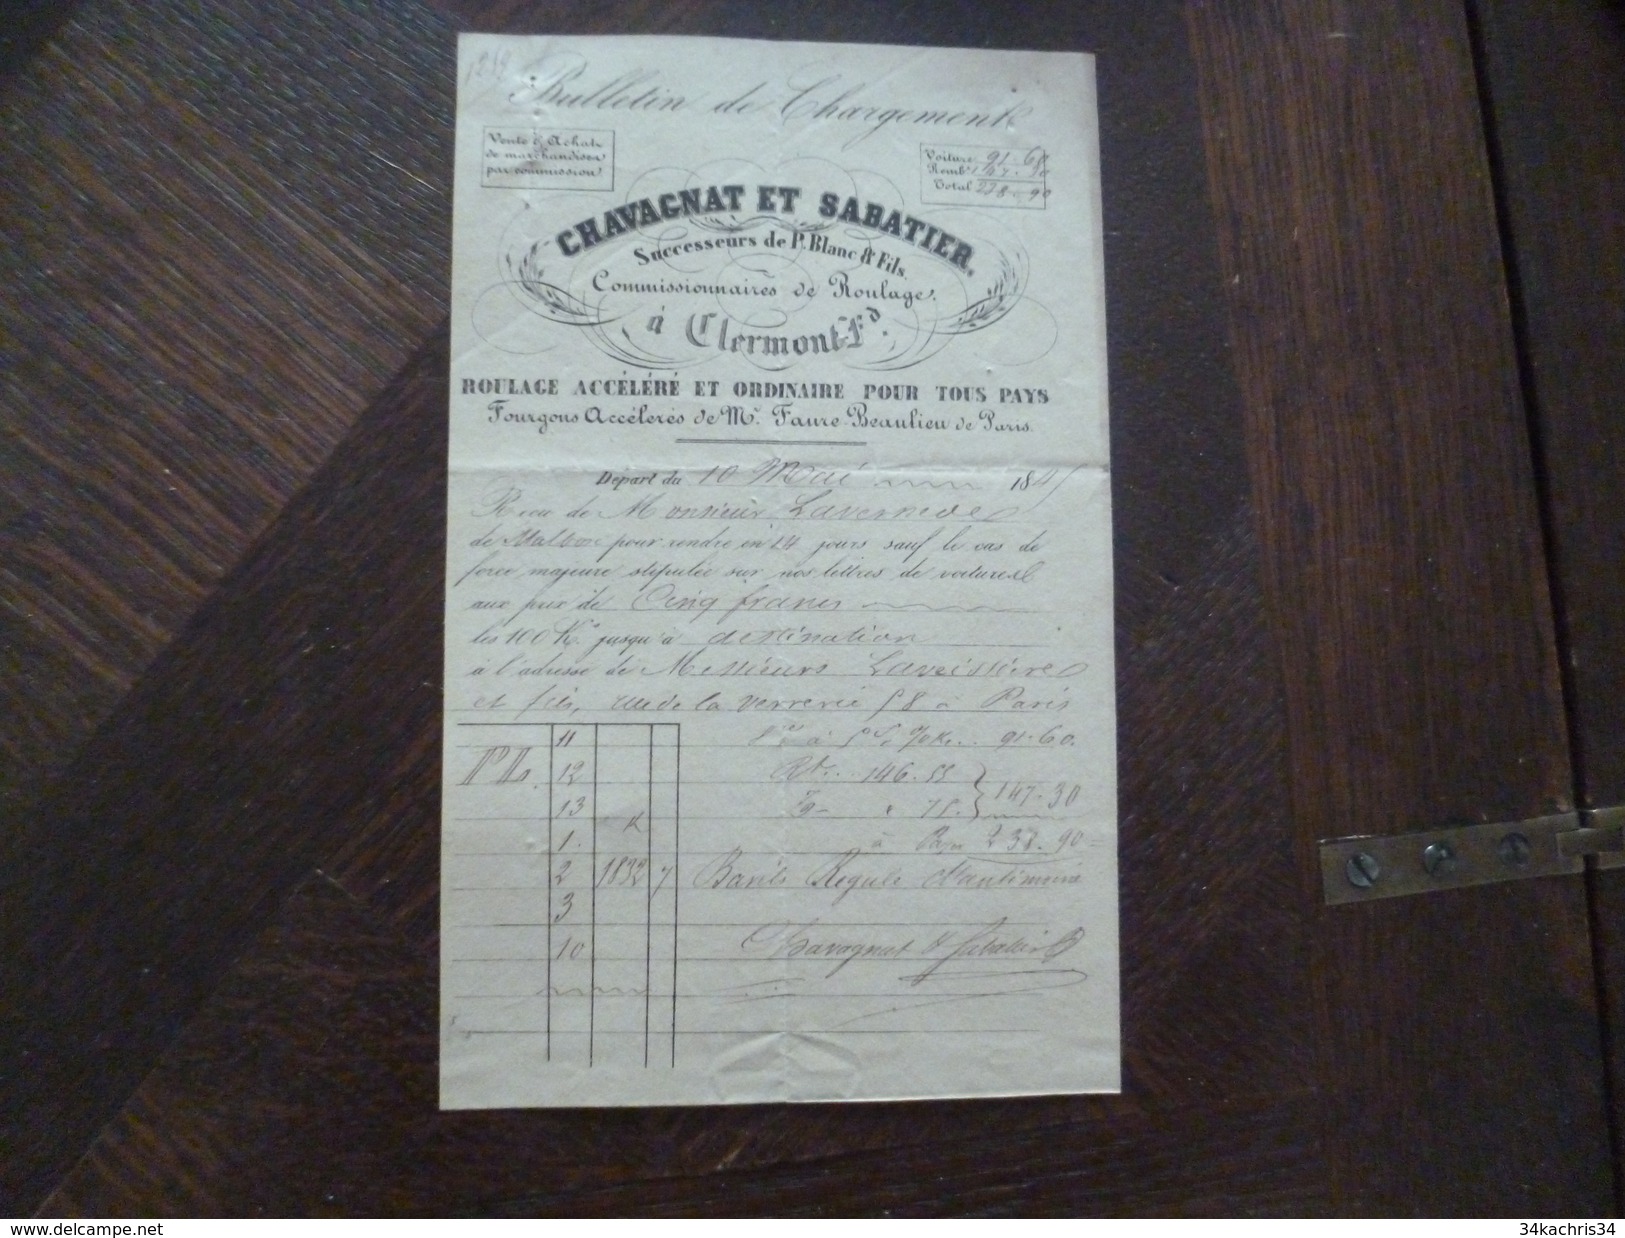 Bulletin de Chargement
Vente & Achats
de marchandises
par commission
Voiture 91-60
Remb.t 147-30
Total 238-90
CHAVAGNAT ET SABATIER,
Successeurs de P. Blanc & Fils,
Commissionnaires de Roulage,
à Clermont-Fd,
ROULAGE ACCÉLÉRÉ ET ORDINAIRE POUR TOUS PAYS
Fourgons Accélerés de Mr. Faure-Beaulieu de Paris.
Départ du 10 Mai 1845
Reçu de Monsieur Lavernede
de Malbosc pour rendre en 14 jours sauf le cas de
force majeure stipulée sur nos lettres de voitures
aux prix de Cinq francs
les 100 Ko. jusqu'à destination
à l'adresse de Messieurs Laveissière
et fils, rue de la verrerie 58 à Paris
11 à 5 % K.. 91-60.
PL. 12 Rt... 146.55
13 75. 147-30
1. K à Payer 238-90
2 1832 7 Barils Regule d'antimoine
3
10 Chavagnat & Sabatier
delcampe.net
34kachris34